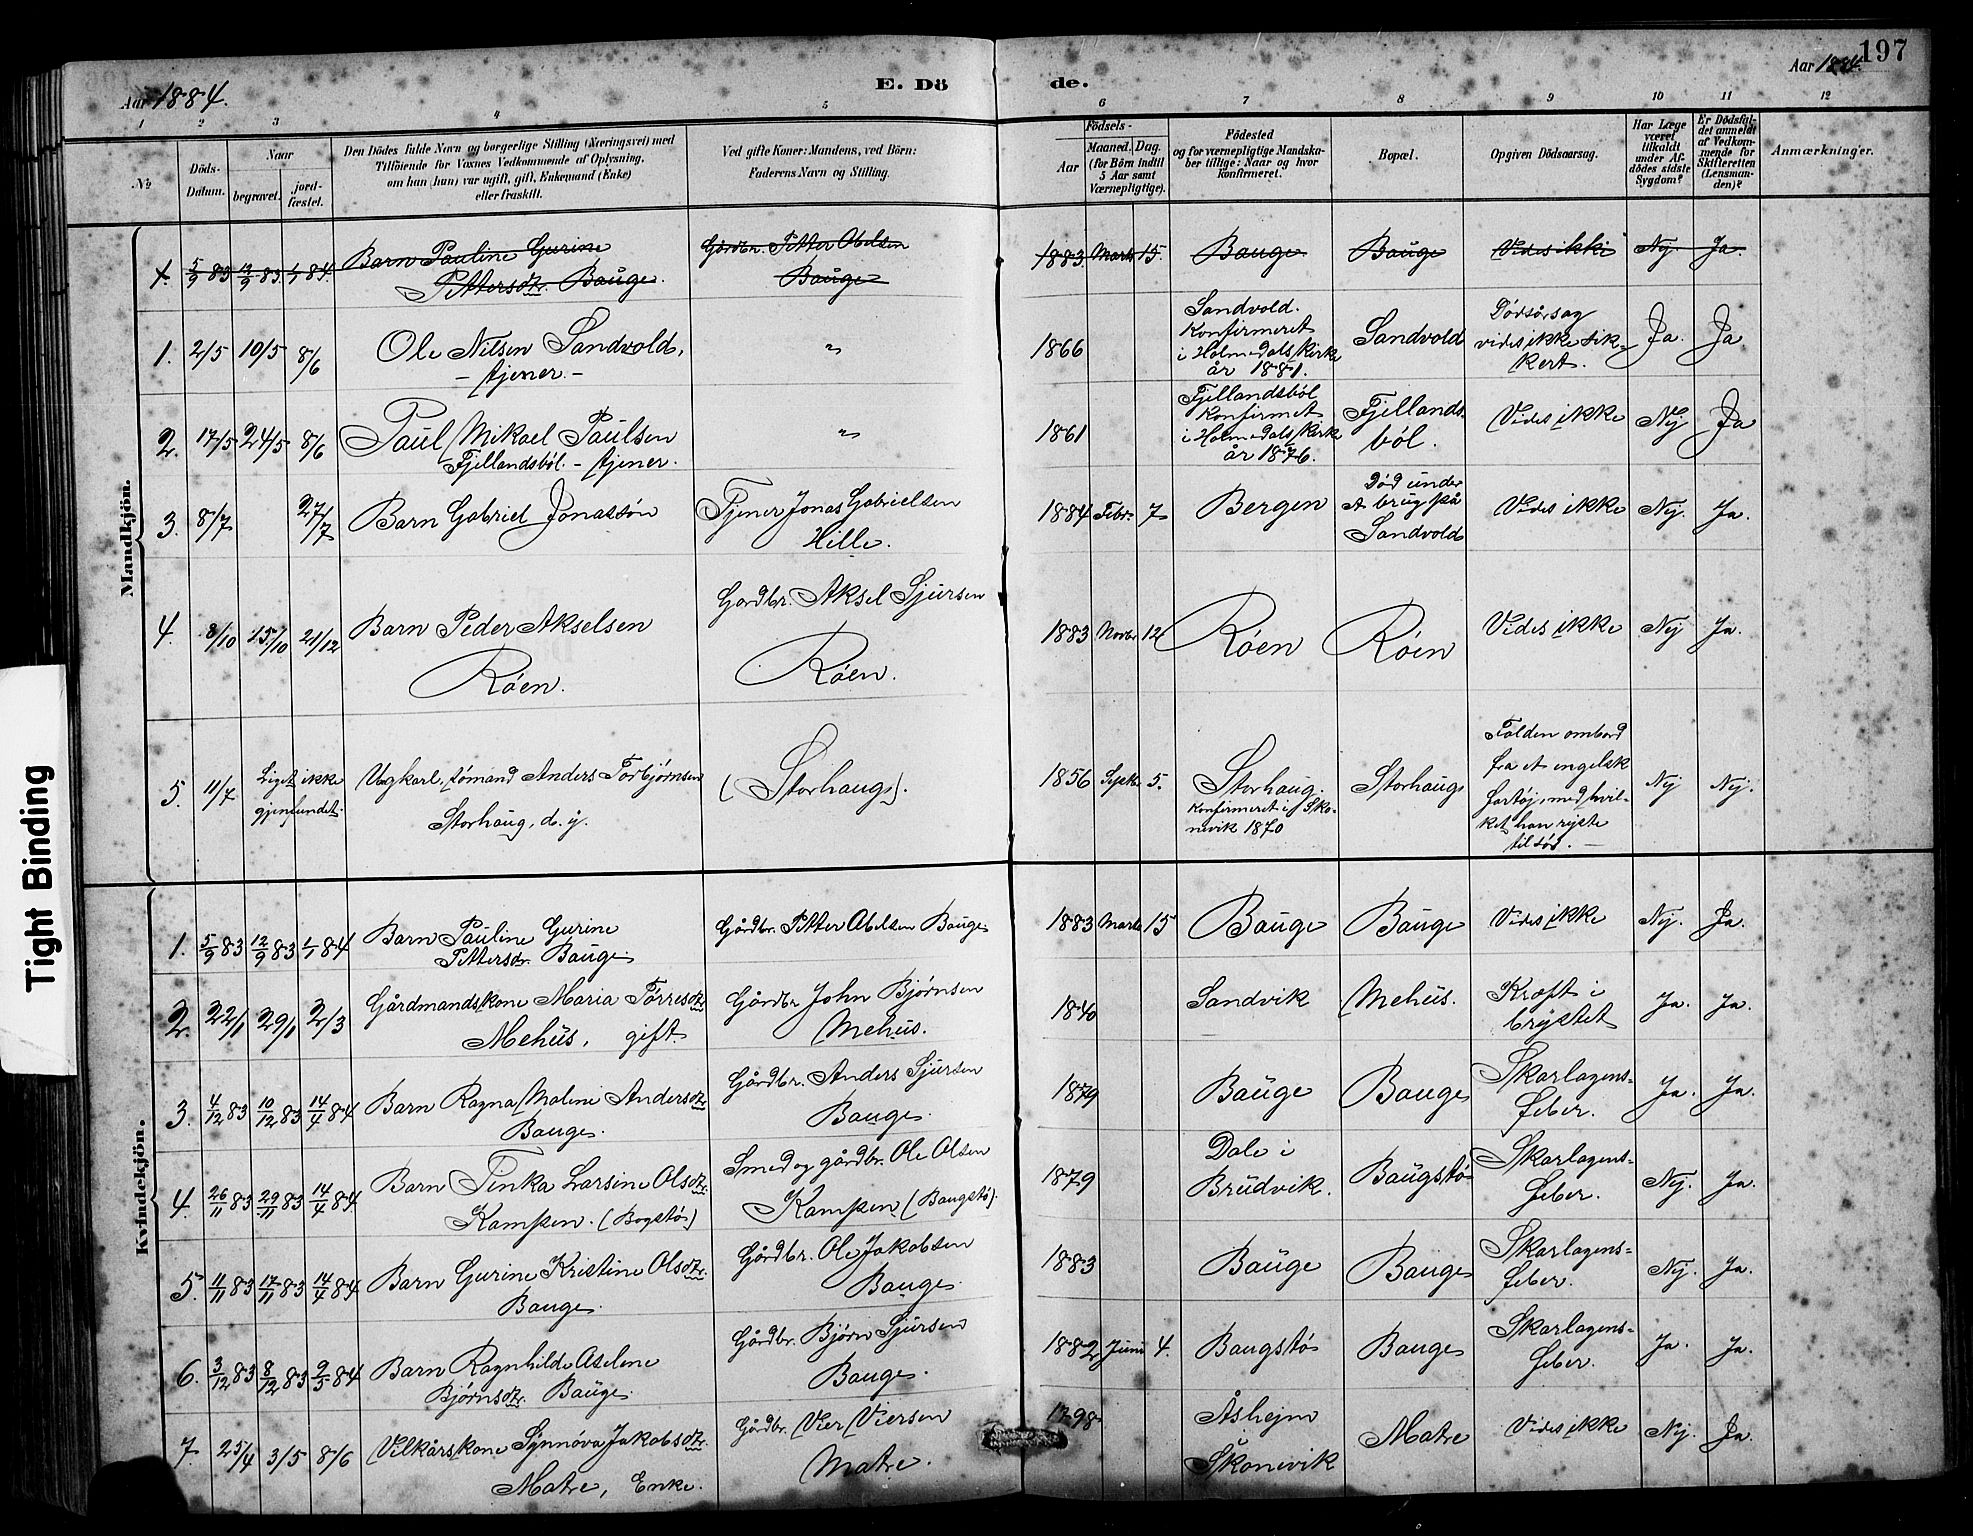 197
Aar 1884.
E. Dö
de.
Aar 1884.
1 2 3 4 5 6 7 8 9 10 11 12
№
Döds-
Datum.
Naar
begravet.
jord-
fæstet.
Den Dödes fulde Navn og borgerlige Stilling (Næringsvei) med
Tilföiende for Voxnes Vedkommende af Oplysning,
om han (hun) var ugift, gift, Enkemand (Enke)
eller fraskilt.
Ved gifte Koner: Mandens, ved Börn:
Faderens Navn og Stilling.
Födsels-
Aar
Maaned. Dag.
(for Börn indtil
5 Aar samt
Værnepligtige).
Födested
og for værnepligtige Mandska-
ber tillige: Naar og hvor
konfirmeret.
Bopæl.
Opgiven Dödsaarsag.
Har Læge
været
tilkaldt
under Af-
dödes sidste
Sygdom?
Er Dödsfal-
det anmeldt
af Vedkom-
mende for
Skifteretten
(Lensman-
den)?
Anmærkninger.
Mandkjön.
1. 5/9 83 12/9 83 1/1 84. Barn Pauline Gurine
Pettersdtr. Bauge.
Gårdbr. Petter Abelsen
Bauge
1883 Marts 15. Bauge Bauge Vides ikke Nej. Ja.
1. 2/5 10/5 8/6 Ole Nilsen Sandvold,
- tjener. -
„
1866
Sandvold.
Konfirmeret
i Holmedals Kirke
år 1881.
Sandvold
Dødsårsag
vides ikke sik-
kert.
Ja. Ja
2. 17/5 24/5 8/6 Paul Mikael Paulsen
Fjellandsböl. - tjener.
„
1861
Fjellandsböl
Konfirmet
i Holmedals Kirke
år 1876.
Fjellands
böl.
Vides ikke Nej Ja
3. 8/7 27/7 Barn Gabriel Jonassön
Tjener Jonas Gabrielsen
Hille.
1884 Febr. 7 Bergen
Död under
et brug på
Sandvold
Vides ikke Nej. Ja.
4. 8/10 15/10 21/12 Barn Peder Akselsen
Röen.
Gardbr. Aksel Sjursen
Röen.
1883 Novbr 12 Röen Röen Vides ikke Nej Ja.
5. 11/7 Liget ikke
gjenfundet.
Ungkarl, sömand Anders Torbjørnsen
Storhaug, d. y.
(Storhaug).
1856 Septbr 5.
Storhaug.
Konfirmeret i Sko-
nevik 1870
Storhaug
Falden ombord
fra et engelsk
fartøj, med hvil-
ket han rejste
tilsøs. -
Nej Nej.
Kvindekjön.
1. 5/9 83 12/9 83 1/1 84 Barn Pauline Gurine
Pettersdr. Bauge.
Gårdbr. Petter Abelsen Bauge
1883 Marts 15 Bauge Bauge Vides ikke Nej. Ja.
2. 22/1 29/1 2/3 Gårdmandskone Maria Tørresdtr
Mehus, gift.
Gårdbr John Bjørnsen
Mehus.
1840 Sandvik Mehus.
Kræft i
brystet
Ja. Ja.
3. 4/12 83 10/12 83 14/4 84 Barn Ragna Maline Andersdtr
Bauge.
Gårdbr. Anders Sjursen
Bauge.
1879 Bauge Bauge
Skarlagens-
feber.
Ja. Ja.
4. 26/11 83 29/11 83 14/4 84 Barn Tinka Larsine Olsdtr.
Kampen. (Bogstø)
Smed og gårdbr. Ole Olsen
Kampen (Baugstø).
1879
Dale i
Brudvik.
Baugstø
Skarlagens-
feber.
Nej. Ja.
5. 11/11 83 17/11 83 14/4 84 Barn Gurine Kristine Olsdtr.
Bauge.
Gårdbr. Ole Jakobsen
Bauge.
1883 Bauge Bauge
Skarlagens-
feber.
Nej. Ja.
6. 3/12 83 8/12 83 2/5 84 Barn Ragnhilde Aselene
Bjørnsdtr. Bauge.
Gårdbr. Bjørn Sjursen
Bauge.
1882 Juni 4. Baugstø Bauge
Skarlagens-
feber.
Ja. Ja.
7. 25/4 3/5 8/6 Vilkårskone Synnöva Jakobsdtr.
Matre, Enke.
Gårdbr. Vier Viersen
Matre.
1798
Åshejm
Skonevik
Matre Vides ikke Nej. Ja.
Tight Binding